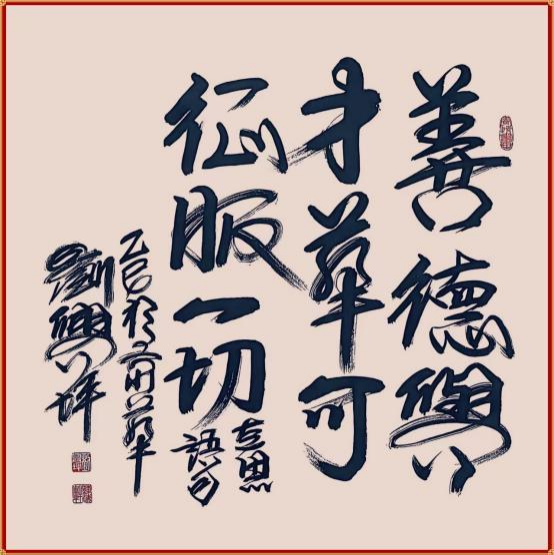 善德與
才華可
征服一切
語句
乙巳於
劉興坪